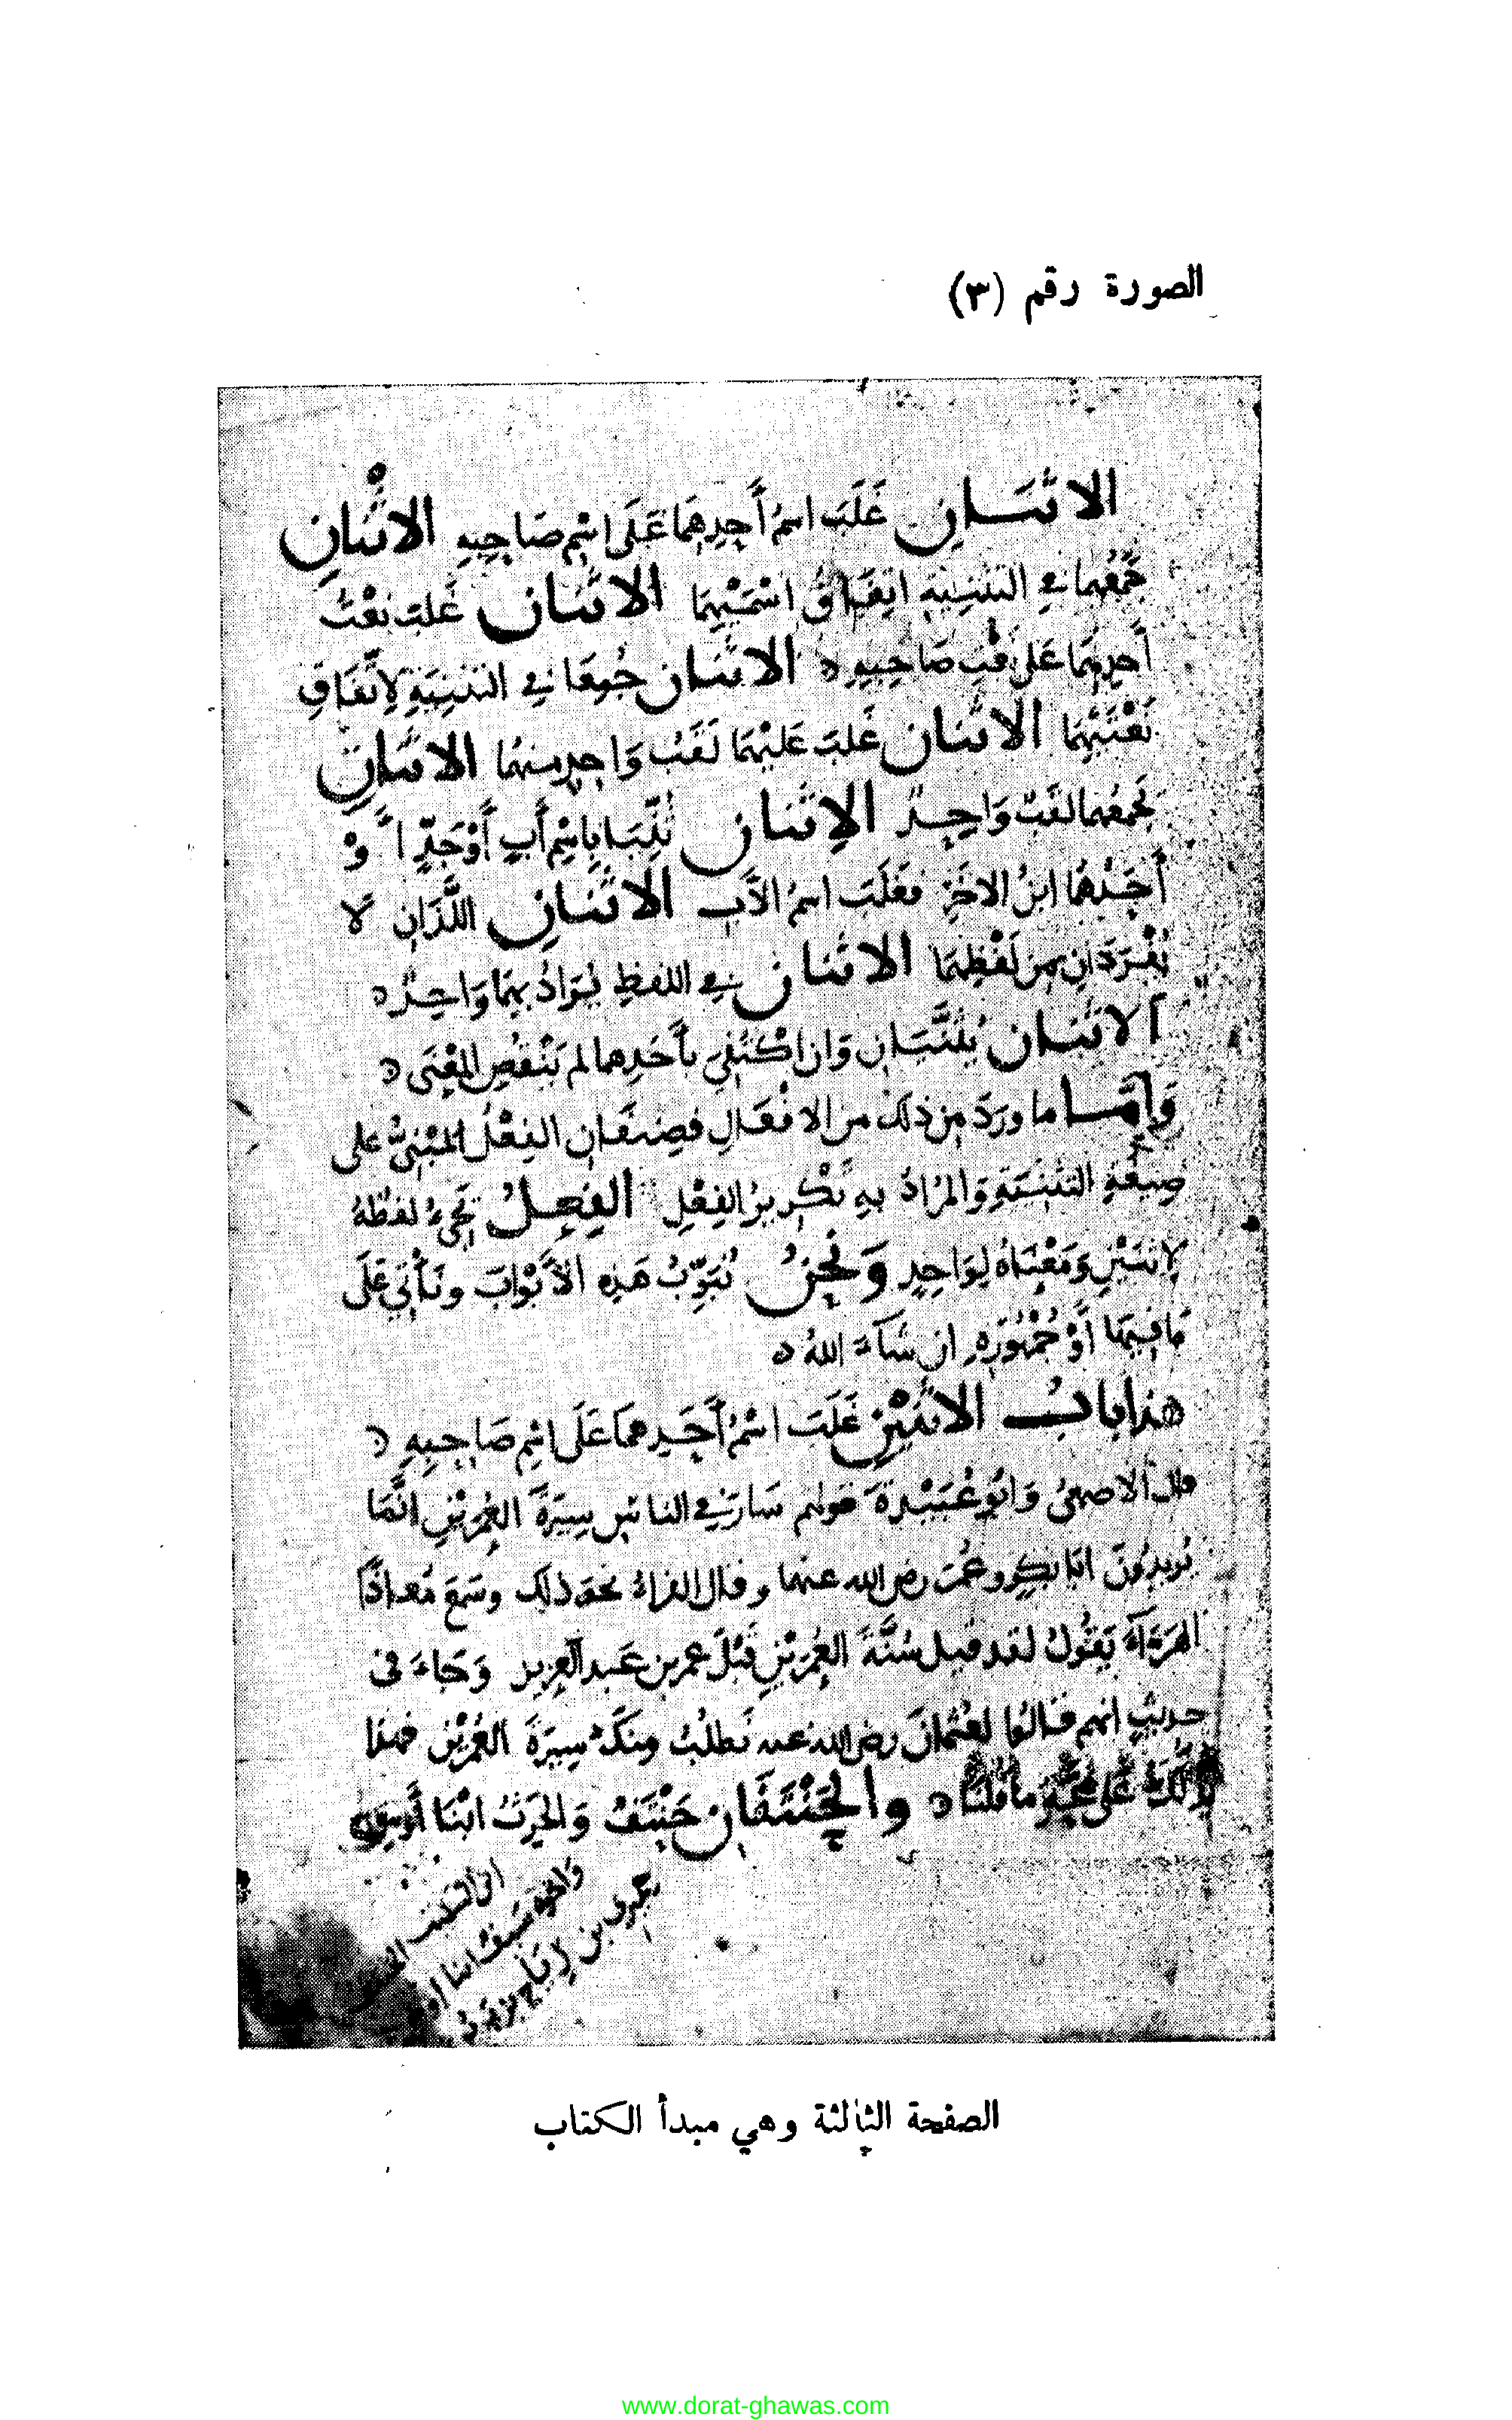 الصورة رقم (٣)
الاثنان غَلَبَ اسمُ أحدِهِمَا عَلَى اسْمِ صَاحِبِهِ الاثْنَانِ
جَمَعهما في التثنية اتِّفَاقُ اسْمَيْهِمَا الاثنان غلب نَعْتُ
أحدِهما عَلَى نعْتِ صَاحِبِهِ الاثنان جُمِعَا في التثنيةِ لاتِّفَاقِ
نَعْتَيْهِمَا الاثنان غلبَ عَلَيْهِمَا لَقَبُ وَاحِدٍ منهُما الاثنان
يجمعُهما لقَبٌ وَاحِدٌ الاثنان لُقِّبَا بِاسْمِ أَبٍ أَوْ جَدٍّ أَوْ
أَحَدُهُما ابْنُ الآخَرِ فغَلَبَ اسمُ الأَب الاثنانِ اللَّذَانِ لا
يُفْرَدَانِ مِن لَفْظِهِمَا الاثنان في اللفظِ يُرَادُ بِهِمَا وَاحِدٌ
الاثنان يُثَنَّيَانِ وَانِ اكْتُفِيَ بأَحَدِهما لم يَنْقُصِ المَعْنَى
وَأَمَّا ما وردَ مِن ذلك من الافْعَالِ فصِنفَانِ الفِعْلُ المَبْنِيُّ على
صِيغَةِ التَّثْنِيَةِ وَالمُرَادُ بِهِ تَكْرِيرُ الفِعْلِ الفِعلُ يَجِيءُ لفظُهُ
لاثنَيْنِ وَمَعْنَاهُ لِوَاحِدٍ وَنَحْنُ نُبَوِّبُ هَذِهِ الأَبْوَابَ ونَأْتِي عَلَى
مَا فِيهَا أَوْ جُمْهُورِهِ ان شَآءَ اللهُ
هذا باب الاثْنَيْنِ غَلَبَ اسْمُ أَحَدِهِمَا عَلَى اسْمِ صَاحِبِهِ
قال الاصمعيُّ وَابُو عُبَيْدَةَ قولهم سَارَ في الناسِ سِيرَةَ العُمَرَيْنِ انَّمَا
يُرِيدُونَ ابَا بَكرٍ وعُمَرَ رضي الله عنهما وقال الفراءُ نحوَ ذلك وسَمِعَ مُعاذًا
الهَرَّاءَ يَقُولُ لقد قيل سُنَّةَ العُمَرَيْنِ قَبْلَ عمر بن عَبد العزيز وَجَاءَ في
حديثٍ انهم قالوا لعُثْمَانَ رضي الله عنه نَطلُبُ مِنكَ سِيرَةَ العُمَرَيْنِ فهذا
ما قلنا والحَنْتَفَانِ حَنْتَفُ وَالحَرِثُ ابْنَا أَوسِ
بن
الصفحة الثالثة وهي مبدأ الكتاب
www.dorat-ghawas.com